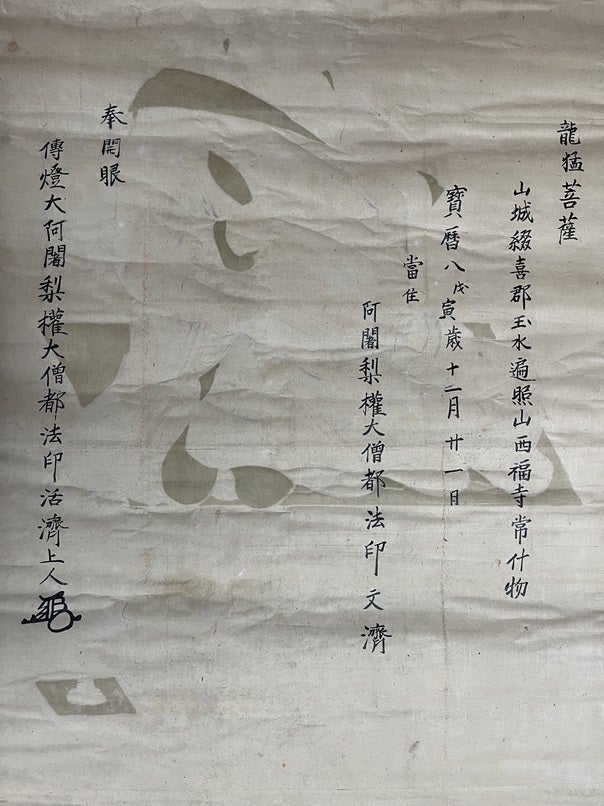 龍猛菩薩
山城綴喜郡玉水遍照山西福寺常什物
寶暦八戊寅歳十二月廿一日
當住
阿闍梨權大僧都法印文濟
奉開眼
傳燈大阿闍梨權大僧都法印活濟上人